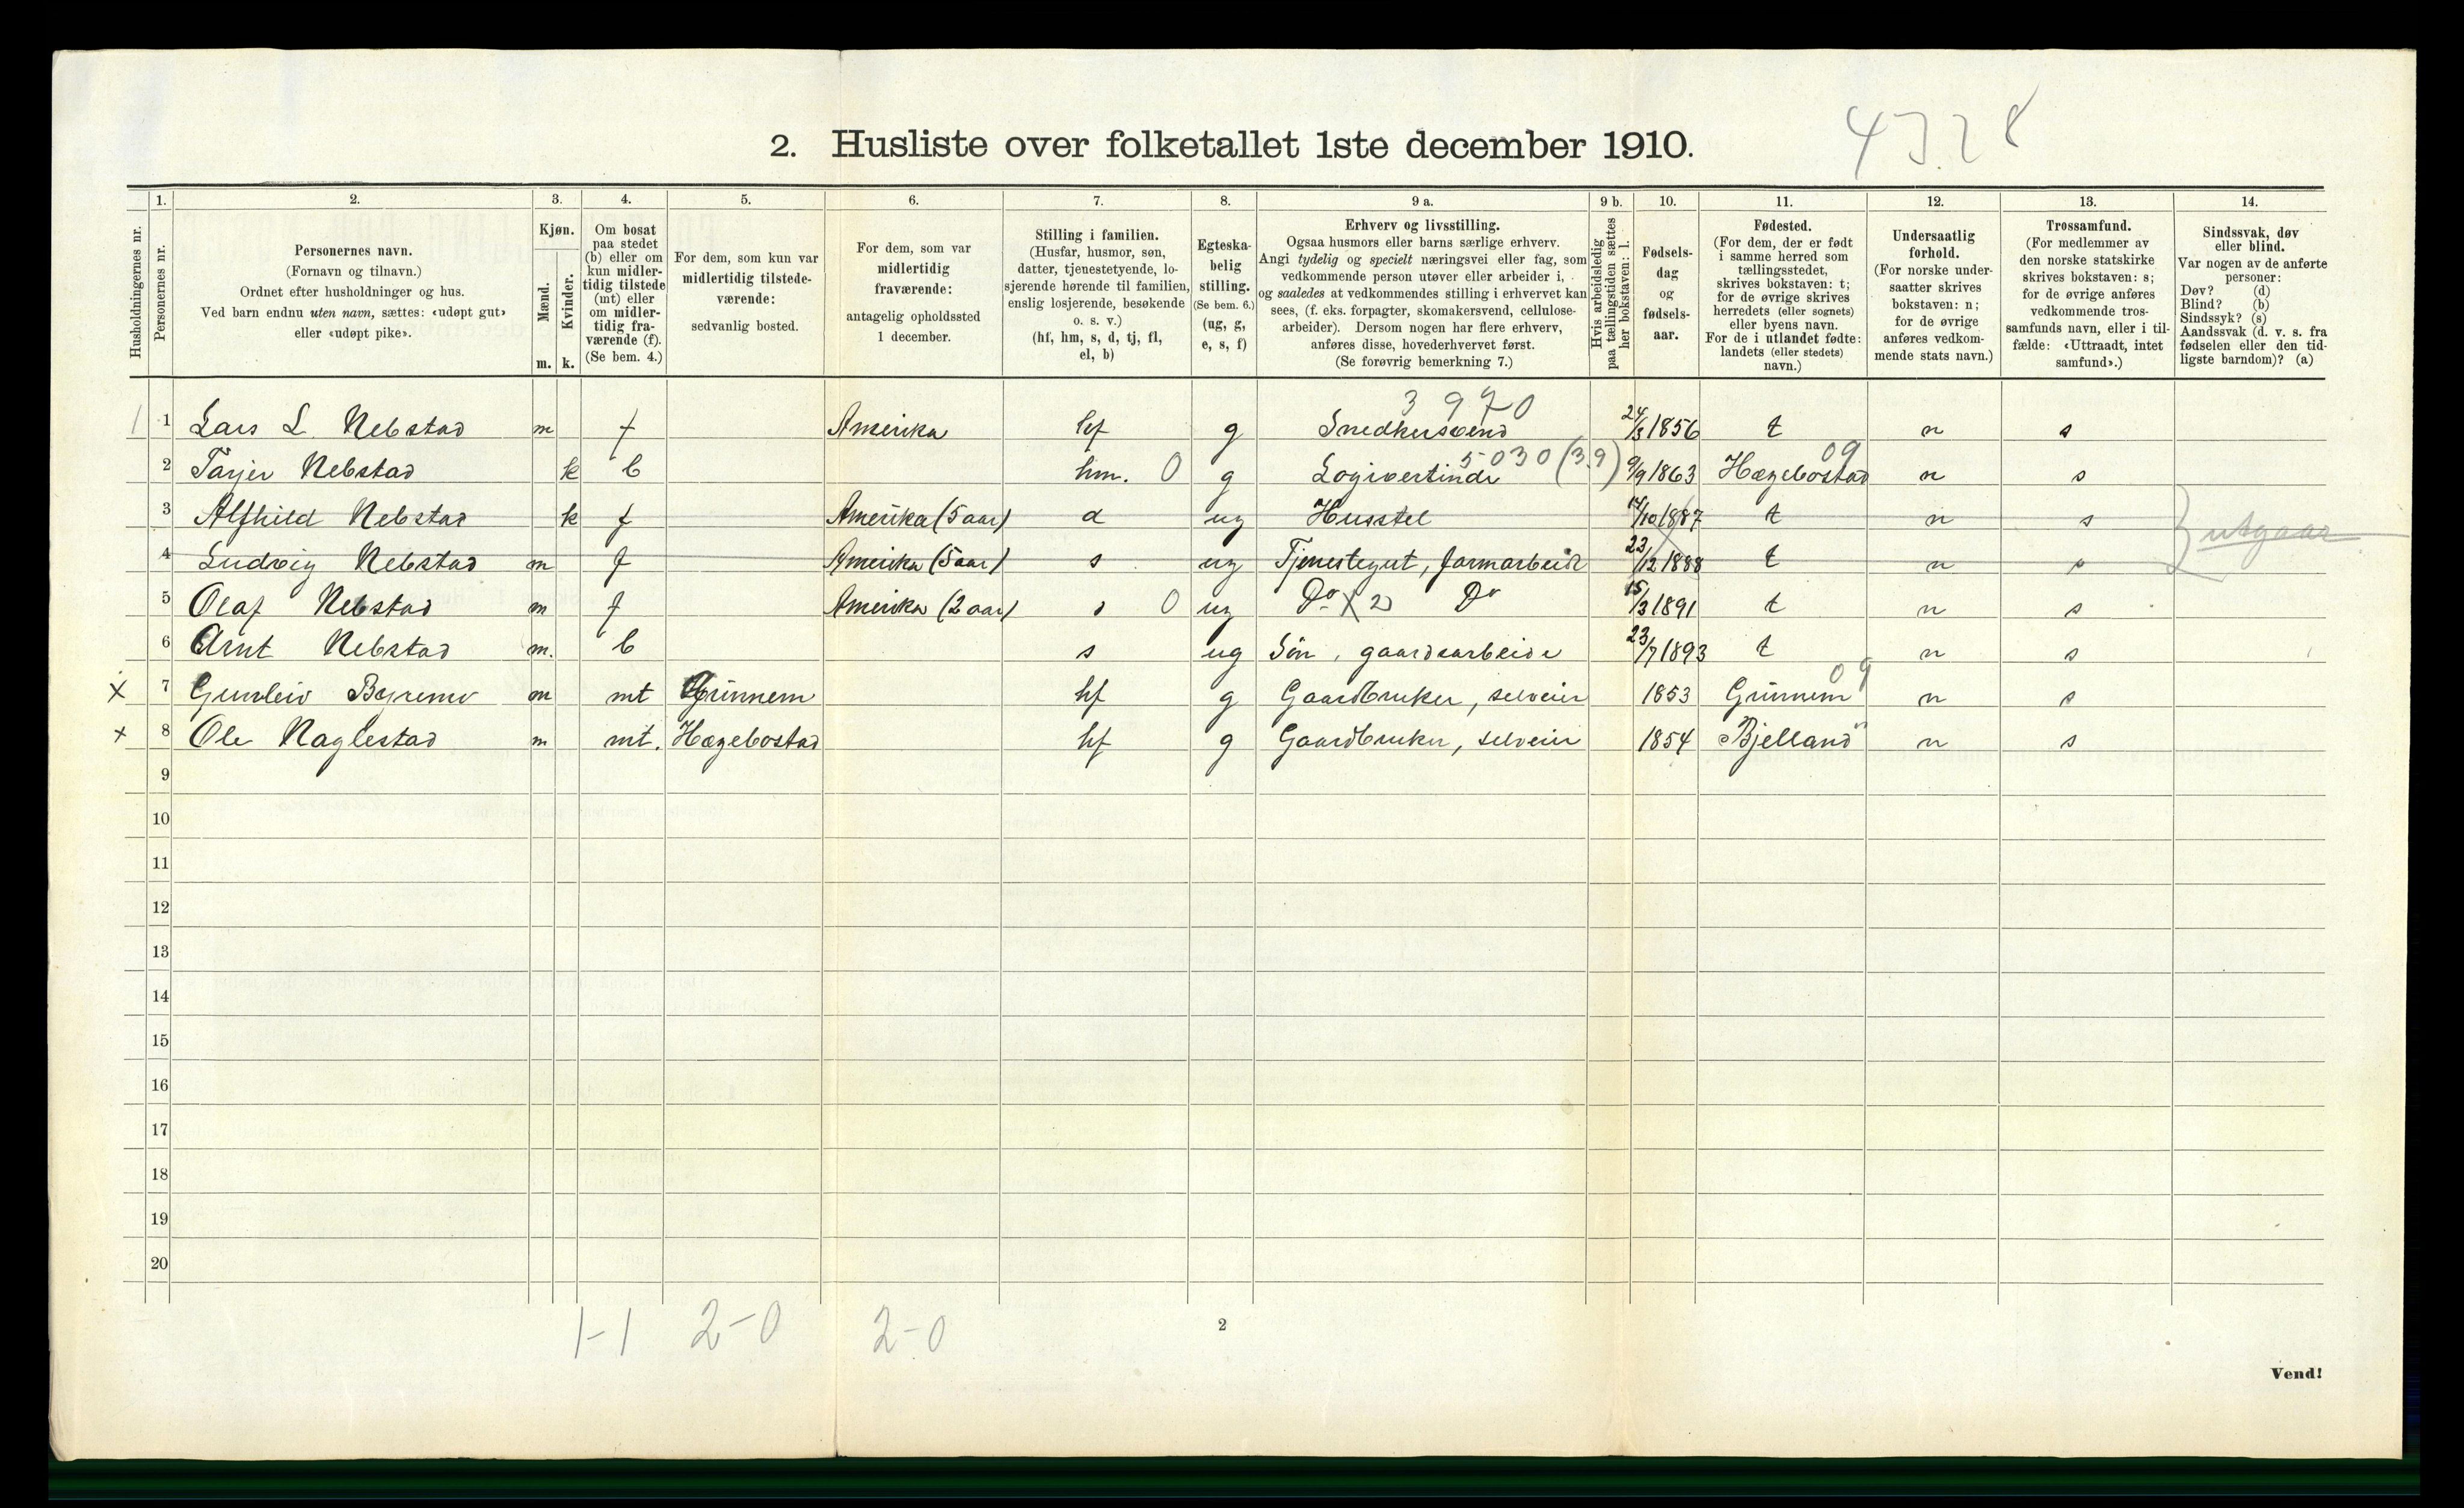 4328
2. Husliste over folketallet 1ste december 1910.
Husholdningernes nr.
1.
Personernes nr.
2.
Personernes navn.
(Fornavn og tilnavn.)
Ordnet efter husholdninger og hus.
Ved barn endnu uten navn, sættes: «udøpt gut»
eller «udøpt pike».
3.
Kjøn.
Mænd.
Kvinder.
m. k.
4.
Om bosat
paa stedet
(b) eller om
kun midler-
tidig tilstede
(mt) eller
om midler-
tidig fra-
værende (f).
(Se bem. 4.)
5.
For dem, som kun var
midlertidig tilstede-
værende:
sedvanlig bosted.
6.
For dem, som var
midlertidig
fraværende:
antagelig opholdssted
1 december.
7.
Stilling i familien.
(Husfar, husmor, søn,
datter, tjenestetyende, lo-
sjerende hørende til familien,
enslig losjerende, besøkende
o. s. v.)
(hf, hm, s, d, tj, fl,
el, b)
8.
Egteska-
belig
stilling.
(Se bem. 6.)
(ug, g,
e, s, f)
9 a.
Erhverv og livsstilling.
Ogsaa husmors eller barns særlige erhverv.
Angi tydelig og specielt næringsvei eller fag, som
vedkommende person utøver eller arbeider i,
og saaledes at vedkommendes stilling i erhvervet kan
sees, (f. eks. forpagter, skomakersvend, cellulose-
arbeider). Dersom nogen har flere erhverv,
anføres disse, hovederhvervet først.
(Se forøvrig bemerkning 7.)
9 b.
Hvis arbeidsledig
paa tællingstiden sættes
her bokstaven: l.
10.
Fødsels-
dag
og
fødsels-
aar.
11.
Fødested.
(For dem, der er født
i samme herred som
tællingsstedet,
skrives bokstaven: t;
for de øvrige skrives
herredets (eller sognets)
eller byens navn.
For de i utlandet fødte:
landets (eller stedets)
navn.)
12.
Undersaatlig
forhold.
(For norske under-
saatter skrives
bokstaven: n;
for de øvrige
anføres vedkom-
mende stats navn.)
13.
Trossamfund.
(For medlemmer av
den norske statskirke
skrives bokstaven: s;
for de øvrige anføres
vedkommende tros-
samfunds navn, eller i til-
fælde: «Uttraadt, intet
samfund».)
14.
Sindssvak, døv
eller blind.
Var nogen av de anførte
personer:
Døv? (d)
Blind? (b)
Sindssyk? (s)
Aandssvak (d. v. s. fra
fødselen eller den tid-
ligste barndom)? (a)
3970
1 1 Lars L. Nebstad m f Amerika hf g Snedkersvend 24/3 1856 t n s
5030 (39) 09
2 Tarjer Nebstad k b hm. 0 g Logivertinde 9/9 1863 Hægebostad n s
3 Alfhild Nebstad k f Amerika (5 aar) d ug Husstel 14/10 1887 t n s
utgaar
4 Ludvig Nebstad m f Amerika (5 aar) s ug Tjenestegut, farmarbeide 23/12 1888 t n s
5 Olaf Nebstad m f Amerika (2 aar) s 0 ug Do x 2) Do 15/3 1891 t n s
6 Arnt Nebstad m. b s ug Søn, gaardsarbeide 23/7 1893 t n s
09
x 7 Gunleiv Byremo m mt Grinnem hf g Gaardbruker, selveier 1853 Grinnem n s
x 8 Ole Naglestad m mt. Hægebostad hf g Gaardbruker, selveier 1854 Bjelland n s
9
10
11
12
13
14
15
16
17
18
19
20
1-1 2-0 2-0
2
Vend!